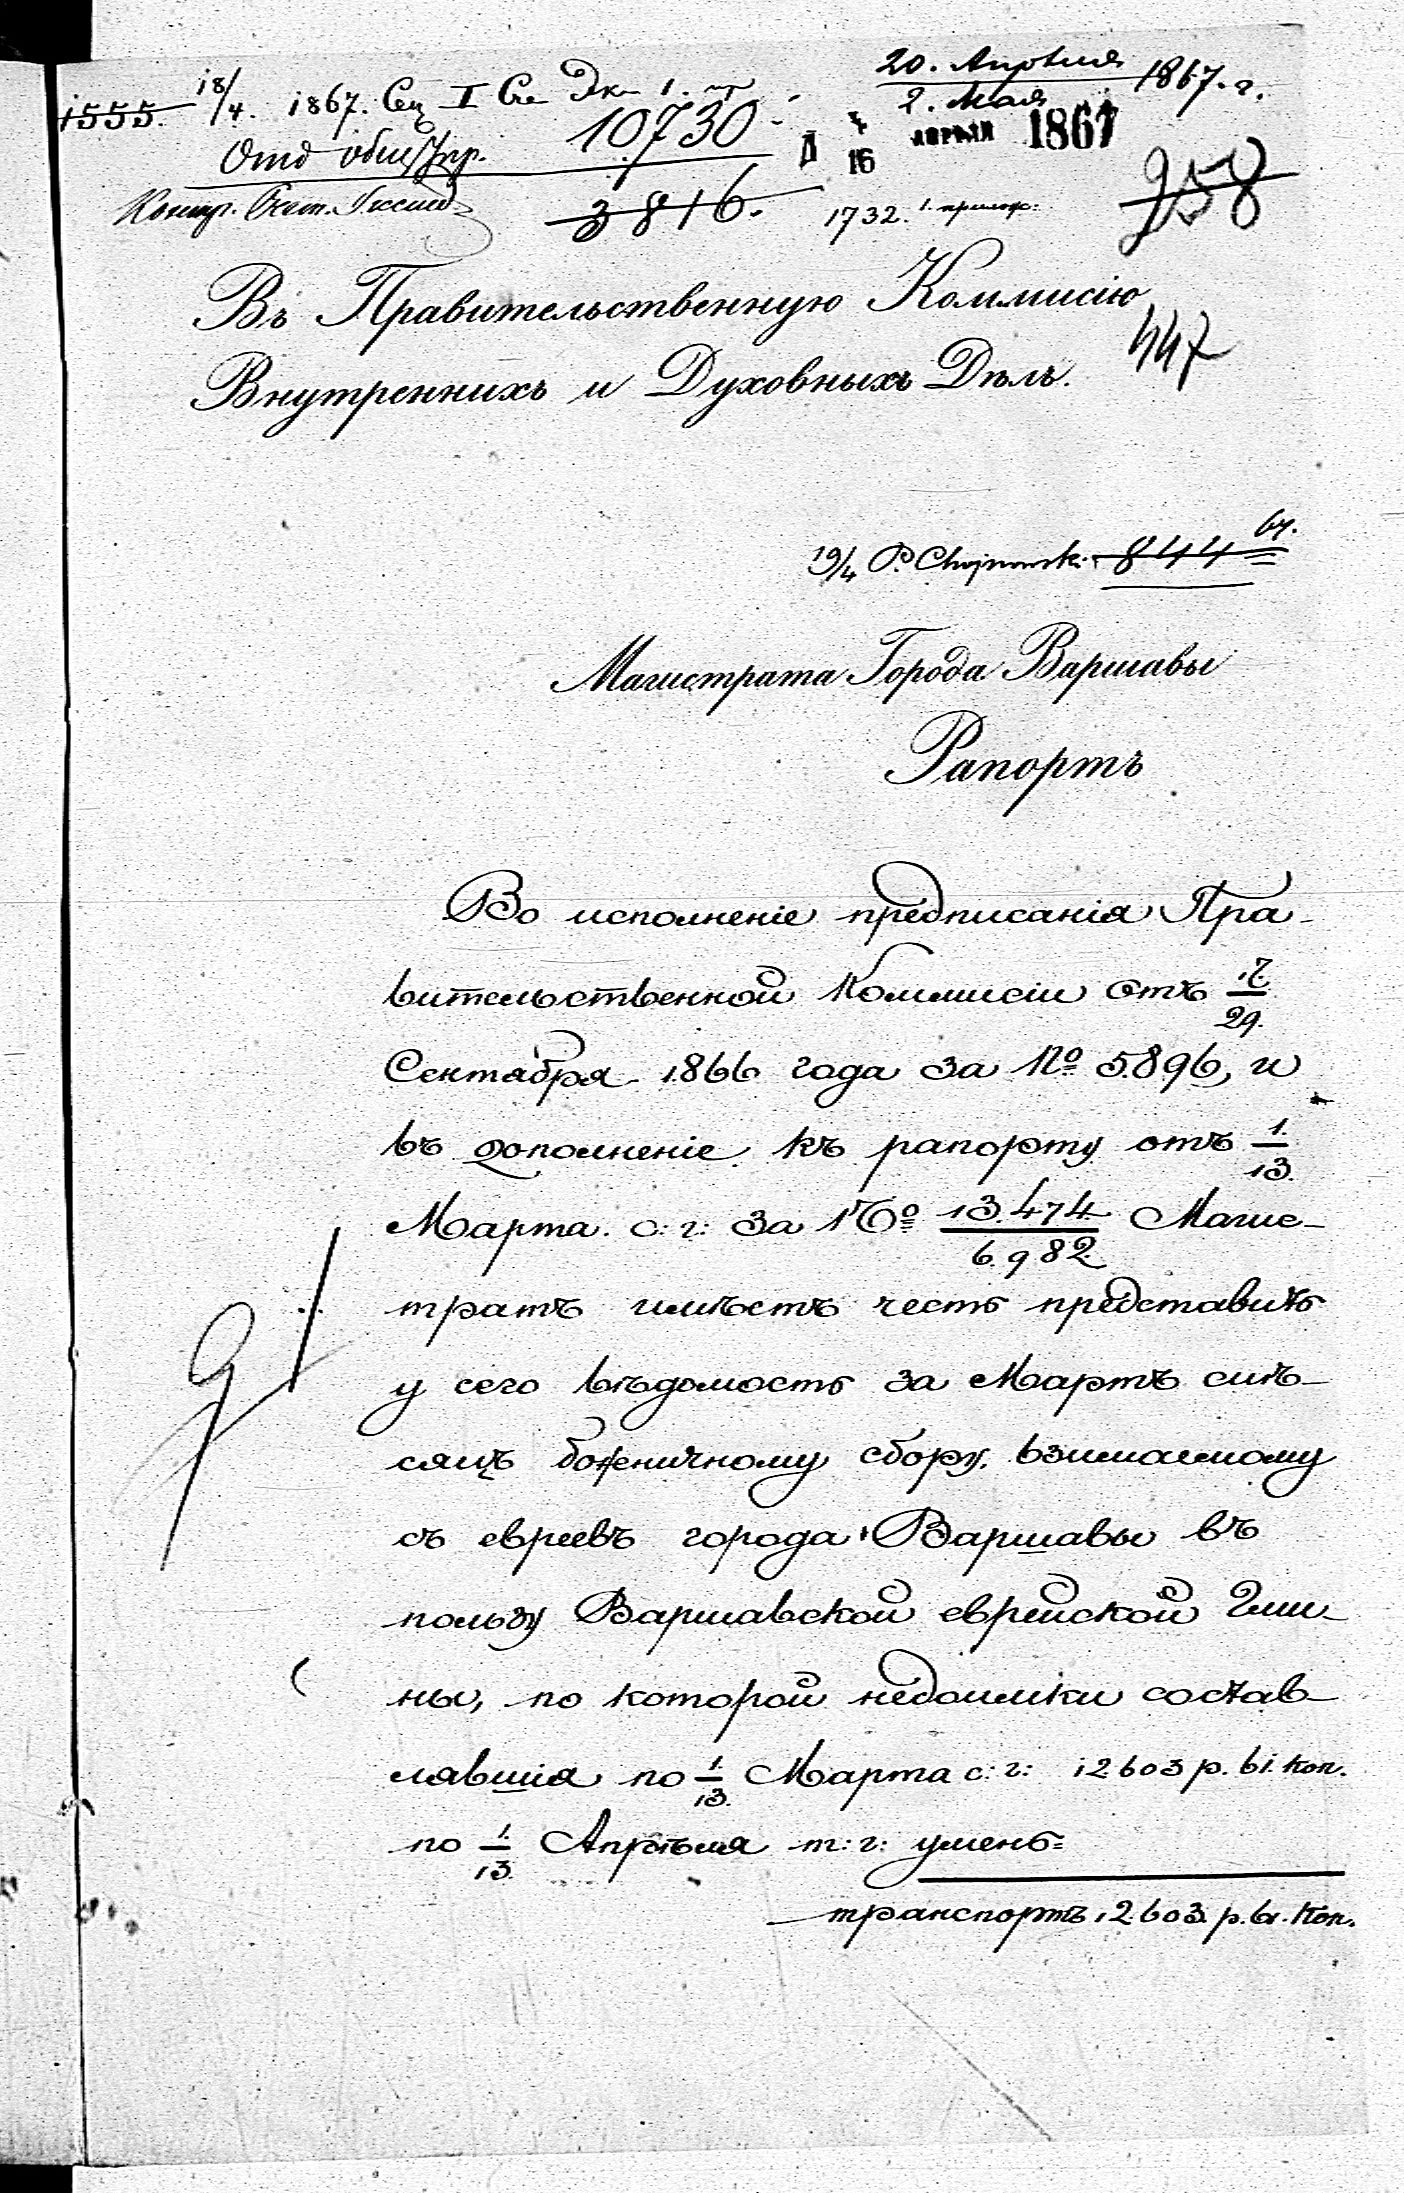 20. Апрѣля
2. Мая 1867. г.
1555. 18/4. 1867. Сец I
10730
4
16 АПРѢЛЯ 1867
Отд общ Упр.
3816.
1732.
258
Въ Правительственную Коммисію
447
Внутреннихъ и Духовныхъ Дѣлъ.
19/4 P. Chojnowski 844 67.
Магистрата Города Варшавы
Рапортъ
Во исполненіе предписанія Пра-
вительственной Коммисіи отъ 17/29.
Сентября 1866 года за No 5896, и
въ дополненіе къ рапорту отъ 1/13.
Марта с: г: за No 13.474/6982 Магис-
тратъ имѣетъ честь представить
у сего вѣдомость за Мартъ мѣ-
сяцъ божничному сбору, взимаемому
съ евреевъ города Варшавы въ
пользу Варшавской еврейской Гми-
ны, по которой недоимки состав-
лявшія по 1/13. Марта с: г: 12603 р. 61. коп.
по 1/13. Апрѣля т: г: умень=
транспортъ 12.603 р. 61. коп.